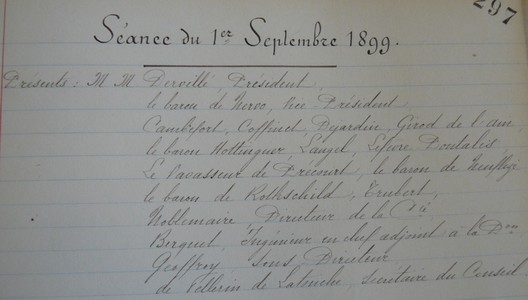 297
Séance du 1er Septembre 1899.
Présents : M M Dervillé, Président,
le baron de Nervo, Vice Président,
Cambefort, Coffinet, Dujardin, Girod de l'ain,
le baron Hottinguer, Laugel, Lefèvre Pontalis,
Le Vavasseur de Précourt, le baron de Neuflize
le baron de Rothschild, Trubert,
Noblemaire Directeur de la Cie
Bergeut, Ingénieur en chef adjoint à la Don
Geoffroy Sous Directeur
de Pellerin de Latouche, Secrétaire du Conseil